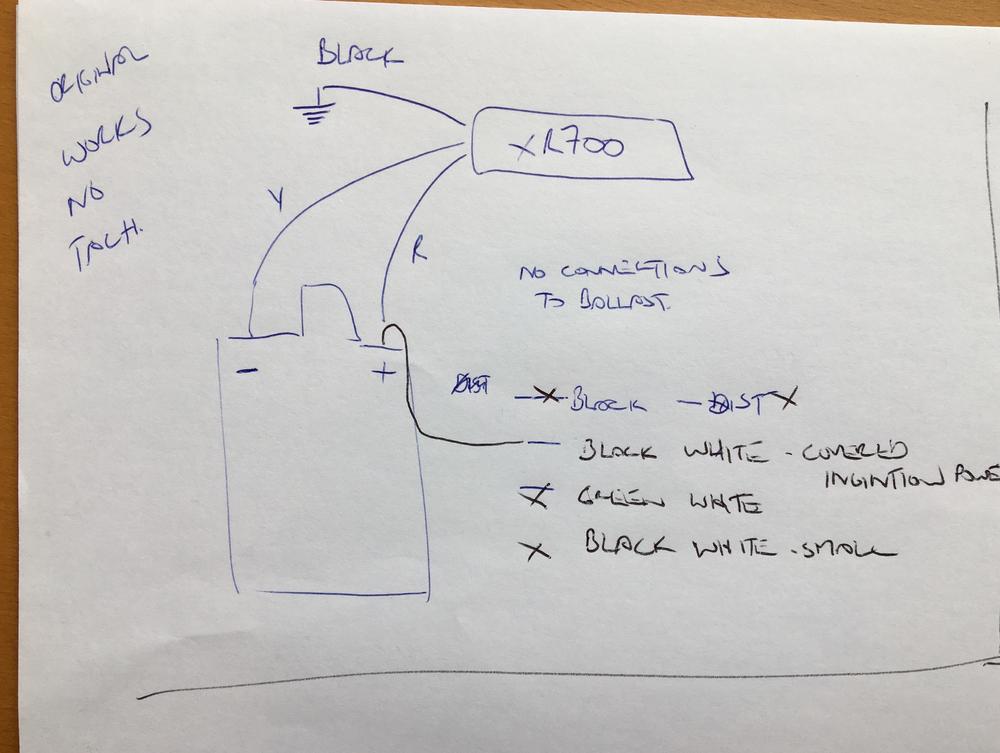 ORIGINAL
WORKS
NO
TACH.
BLACK
XR700
Y
R
NO CONNECTIONS
TO BALLAST.
- +
DIST X BLACK - DIST X
BLACK WHITE - COVERED
INGINTION POWE
X GREEN WHITE
X BLACK WHITE - SMALL